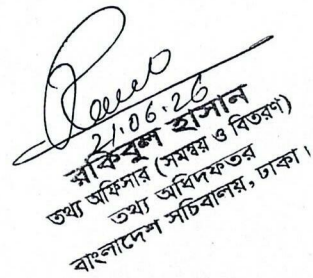 21.06.26
রকিবুল হাসান
তথ্য অফিসার (সমন্বয় ও বিতরণ)
তথ্য অধিদফতর
বাংলাদেশ সচিবালয়, ঢাকা।